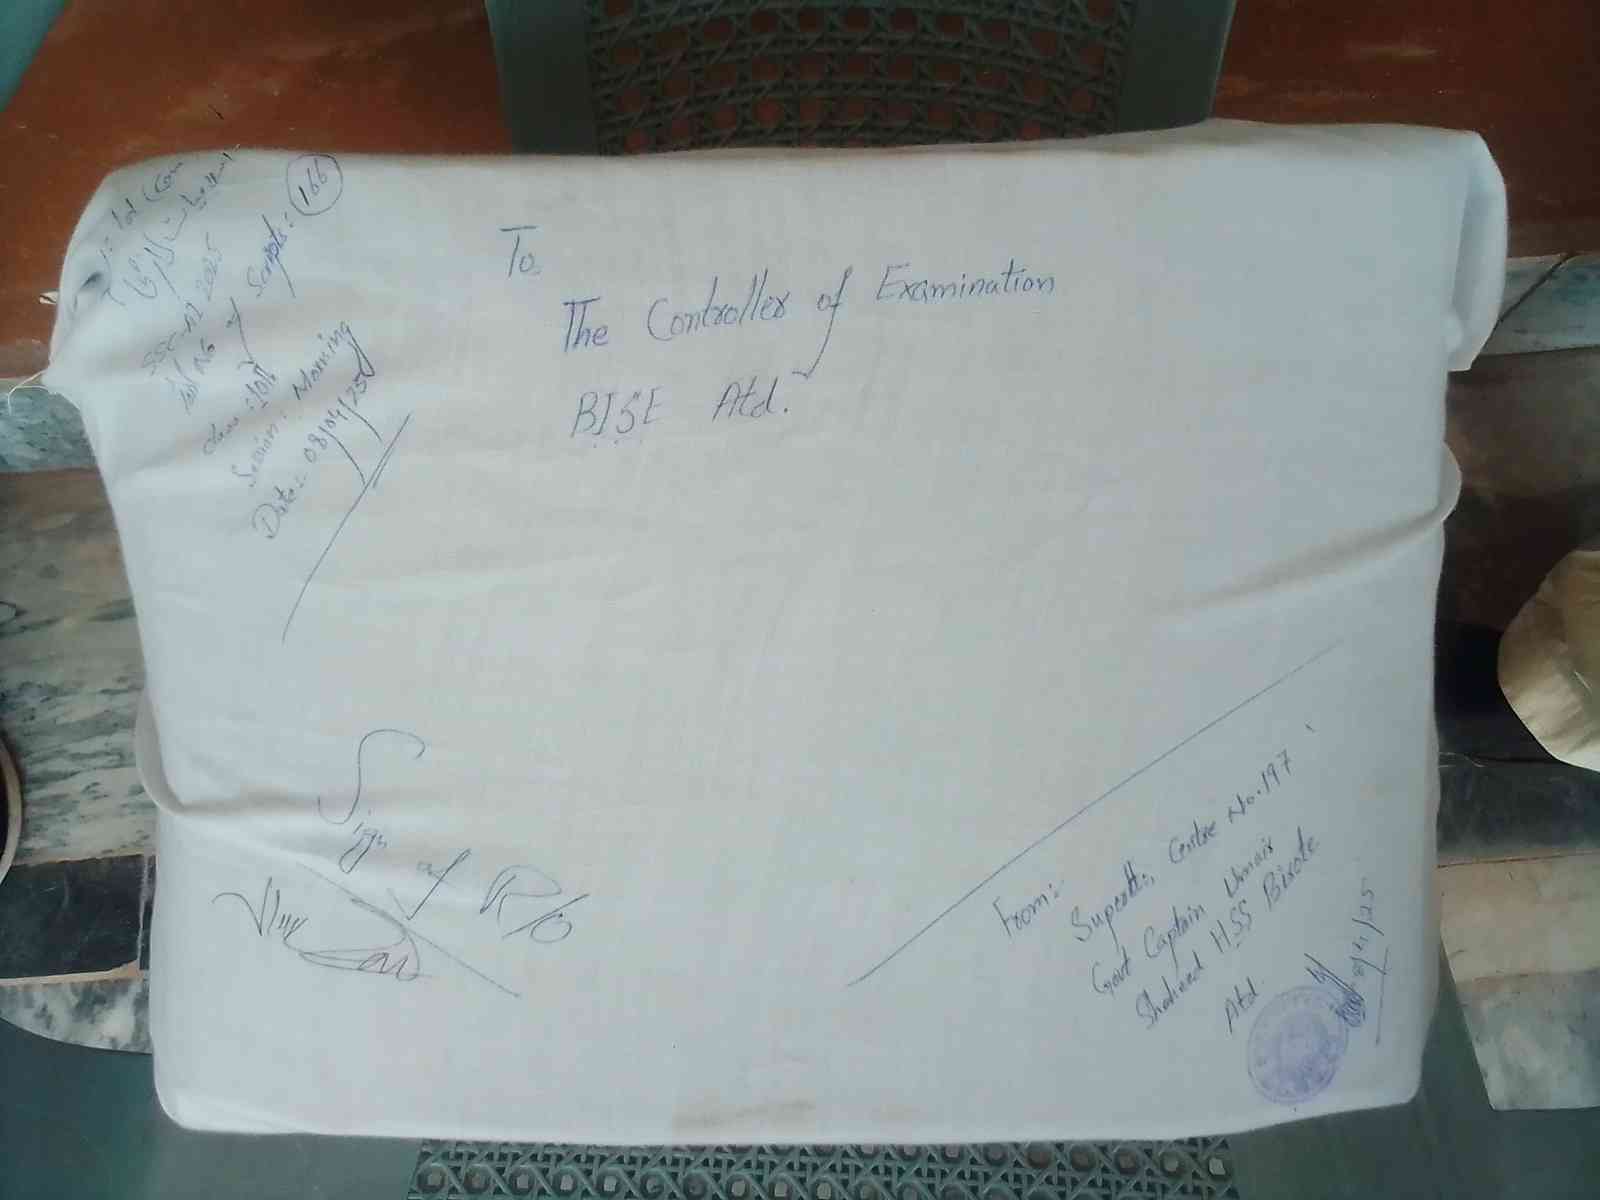 166
SSC-AI 2025
Total No of Scripts:
Class: 10th
Session: Morning
Date:- 08/04/25
To,
The Controller of Examination
BISE Atd.
Sign of R/O
From:-
Supdtt:, Centre No. 197
Govt Captain Umair
Shaheed HSS Birote
Atd.